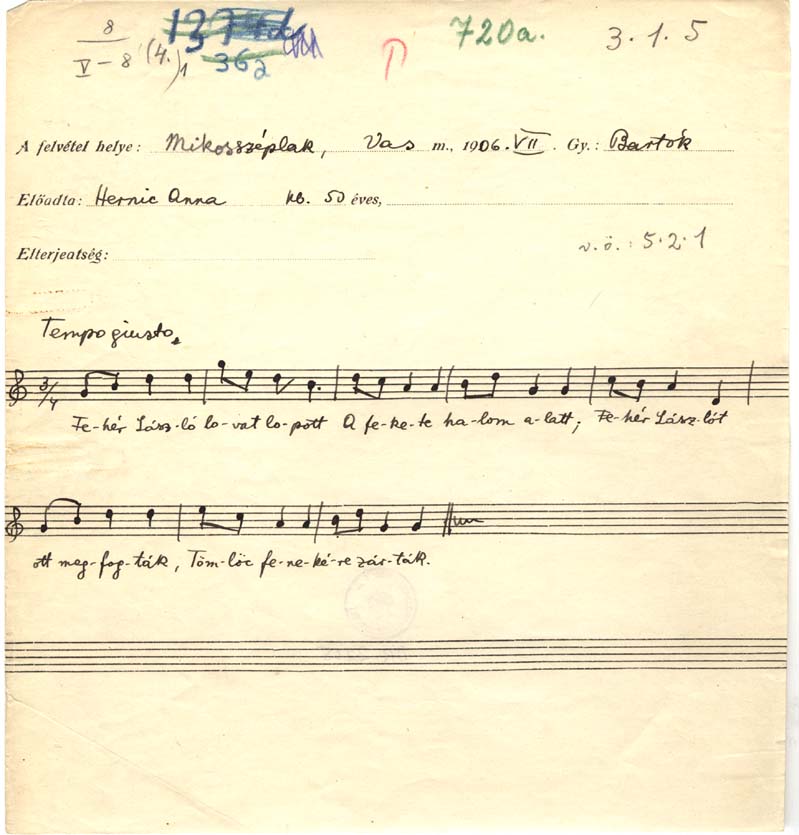 8
V – 8 (4.)1
362
720a.
3.1.5
A felvétel helye: Mikosszéplak, Vas m., 1906. VII. Gy.: Bartók
Előadta: Hernic Anna kb. 50 éves,
Elterjeatség:
v.ö.: 5.2.1
Tempo giusto
3/4
Fe-hér Lász-ló lo-vat lo-pott A fe-ke-te ha-lom a-latt; Fe-hér Lász-lót
ott meg-fog-ták, Töm-löc fe-ne-ké-re zár-ták.